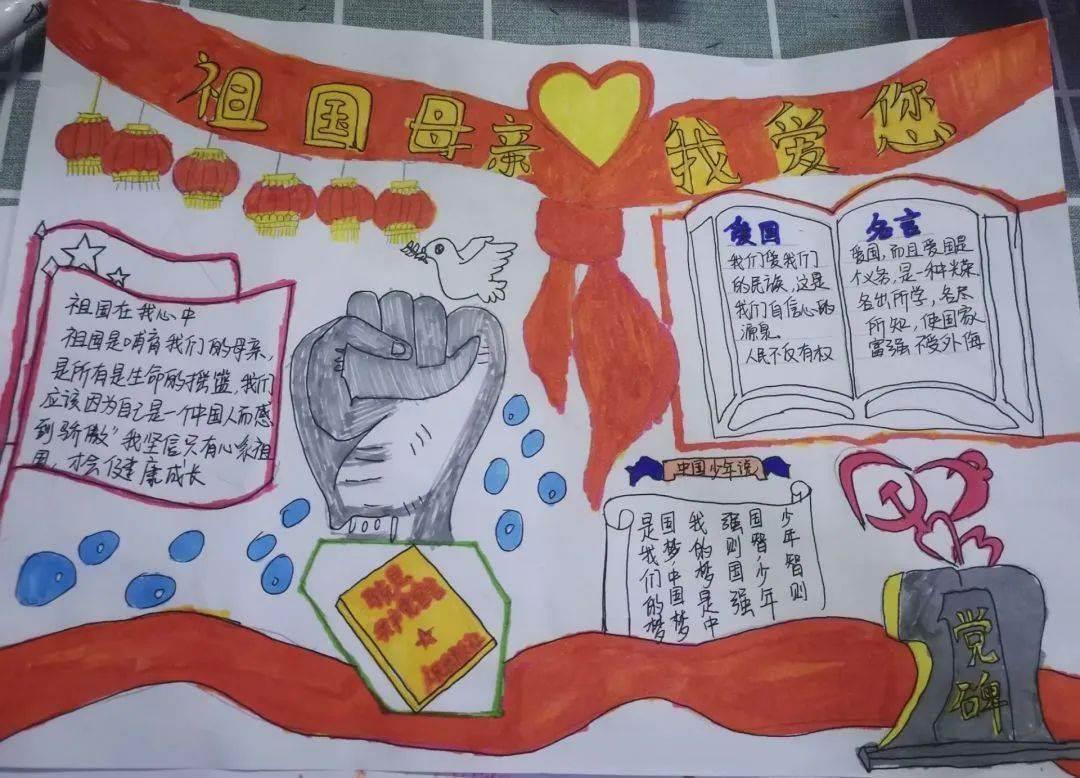 祖国母亲 我爱您
祖国在我心中
祖国是哺育我们的母亲，
是所有是生命的摇篮，我们
应该因为自己是一个中国人而感
到骄傲”我坚信只有心系祖
国，才会健康成长
爱国
我们爱我们
的民族，这是
我们自信心的
源泉
人民不仅有权
名言
爱国，而且爱国是
个义务，是一种光荣
各出所学，各尽
所知，使国家
富强不受外侮
中国少年说
少年智则
国智，少年
强则国强
我的梦是中
国梦，中国梦
是我们的梦
党碑